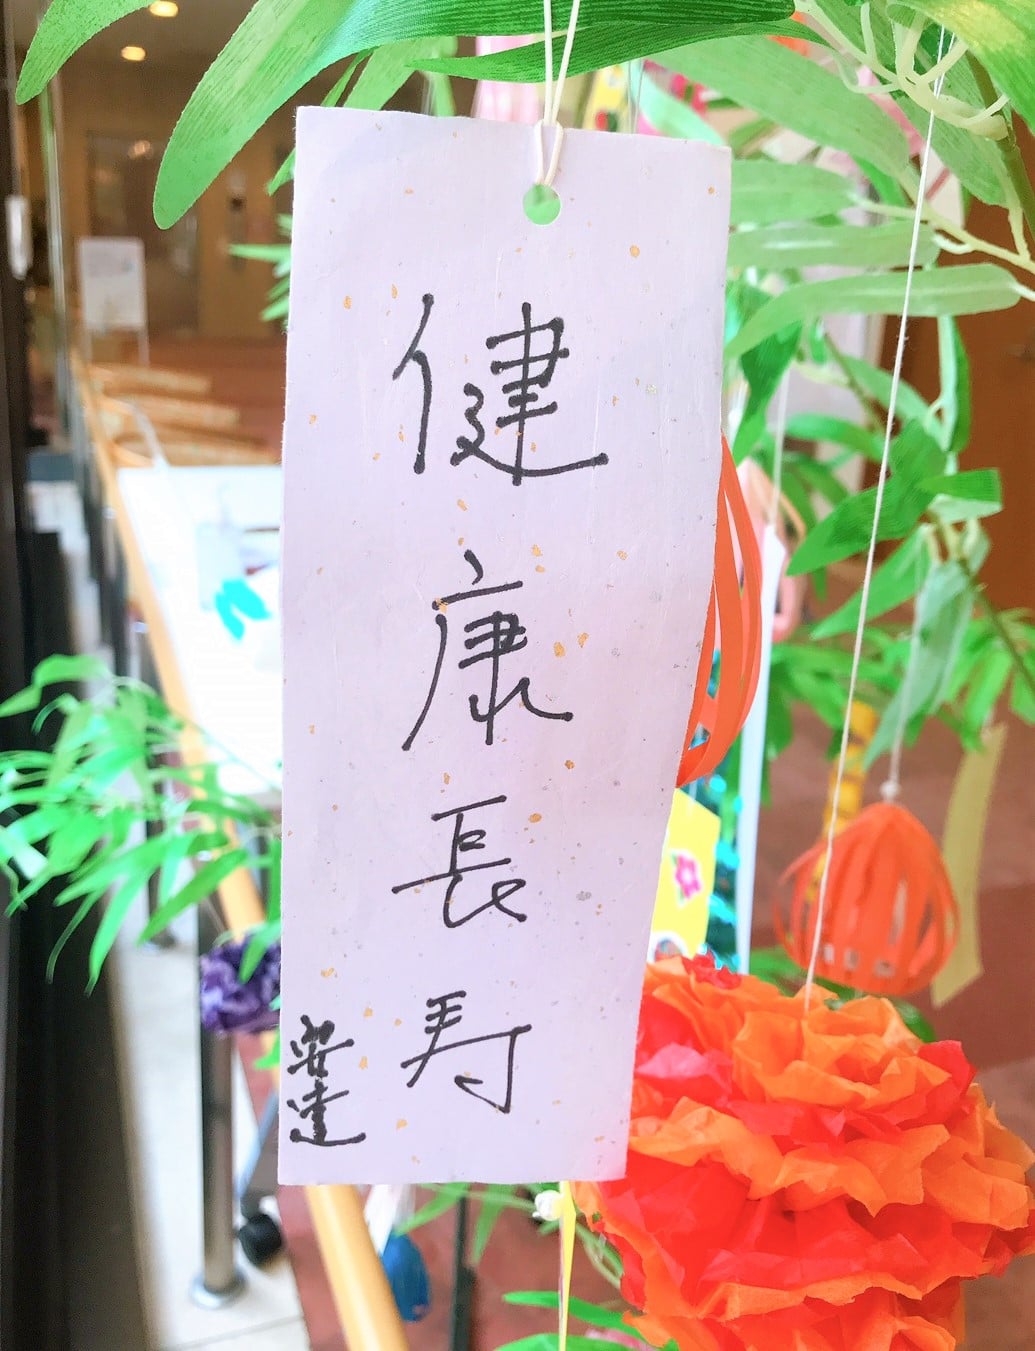 健康長寿
安達